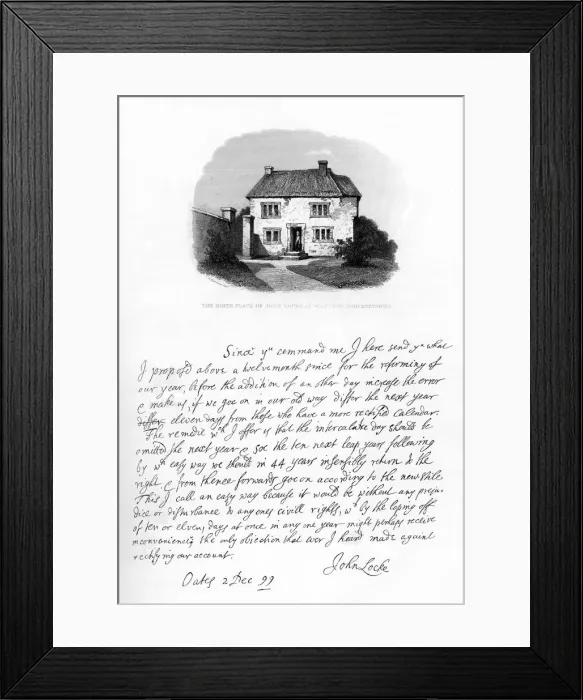 THE BIRTH PLACE OF JOHN LOCKE AT
Since yu command me I here send yu what
I propos'd above a twelve month since for the reforming of
our year, before the addition of an other day increase the error
& make us, if we goe on in our old way differ the next year
differ eleven days from those who have a more rectified Calendar.
The remedie wch I offer is that the intercalar day should be
omitted the next year & soe the ten next leap years following
by wch easy way we should in 44 years insensibly return to the
right & from thence forwards goe on according to the new stile
This I call an easy way because it would be without any preju-
dice or disturbance to any ones civill rights, wch by the loping off
of ten or eleven days at once in any one year might perhaps receive
inconvenience, the only objection that ever I heard made against
rectifying our account.
John Locke
Oates 2 Dec 99